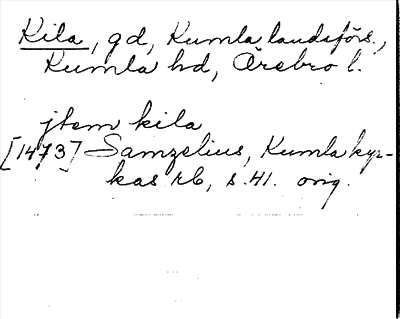 Kila, gd, Kumla landsförs.,
Kumla hd, Örebro l.
jtem kila
[1473] Samzelius, Kumla kyr-
kas rb, s. 41. orig.